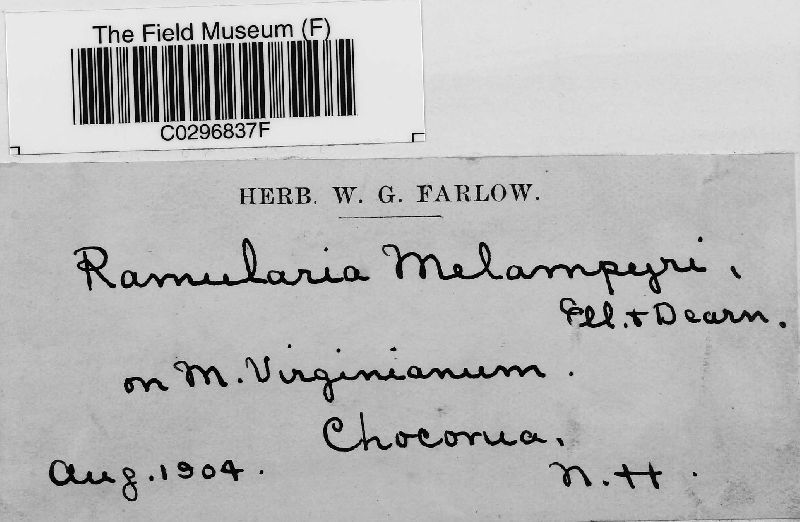 The Field Museum (F)
C0296837F
HERB. W. G. FARLOW.
Ramularia Melampyri,
Ell. & Dearn.
on M. Virginianum.
Chocorua,
Aug. 1904.
N. H.